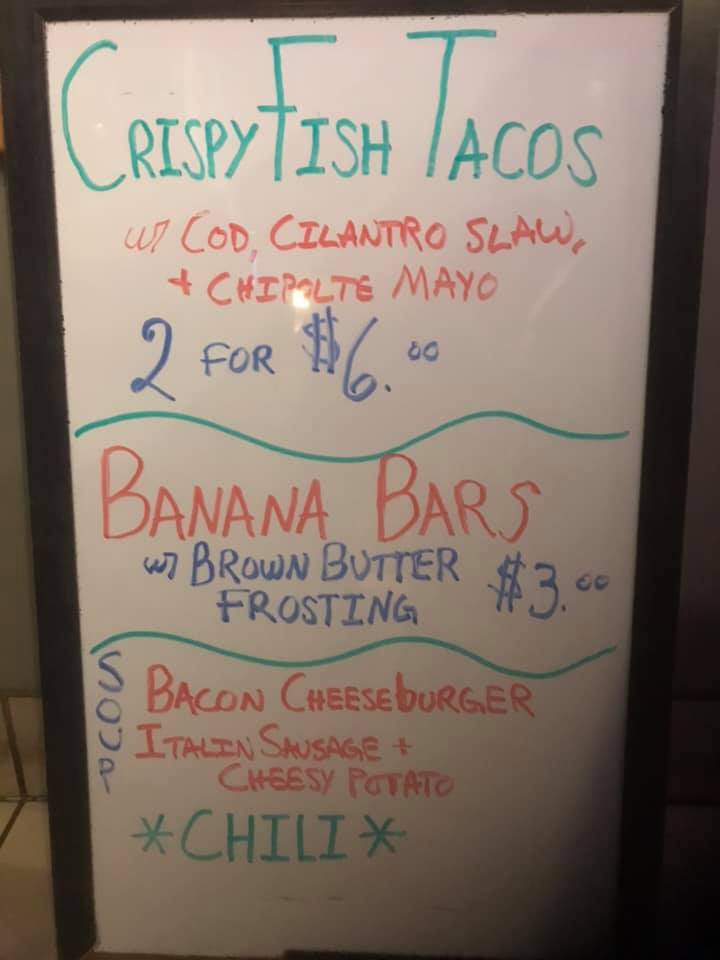 CRISPY FISH TACOS
w/ COD, CILANTRO SLAW,
+ CHIPOLTE MAYO
2 FOR $6.00
BANANA BARS
w/ BROWN BUTTER
FROSTING $3.00
SOUP
BACON CHEESEBURGER
ITALIN SAUSAGE +
CHEESY POTATO
*CHILI*